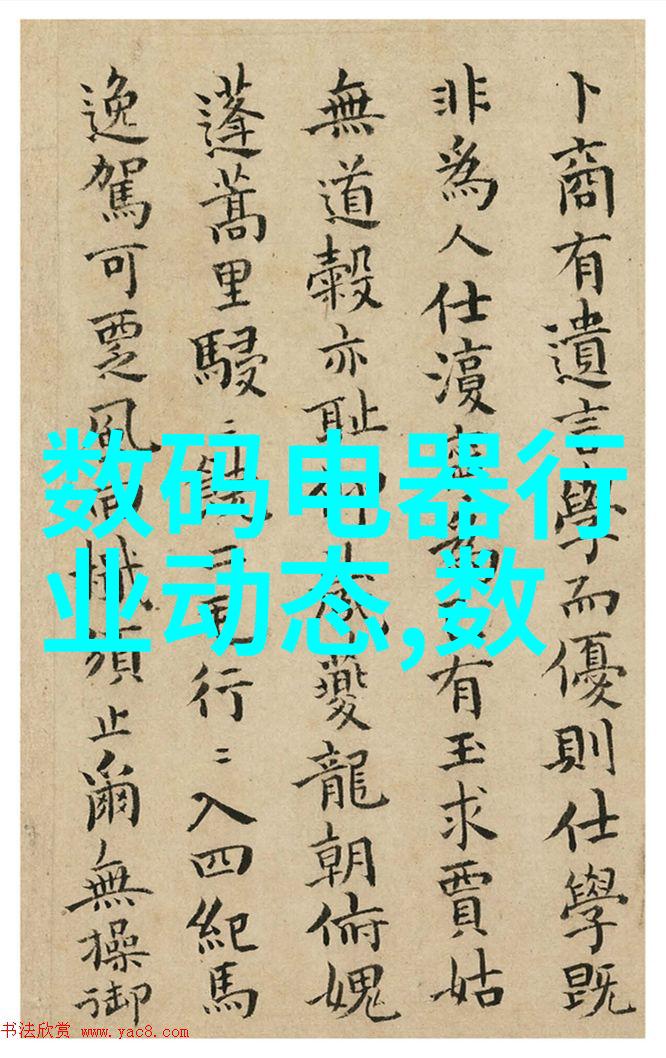 卜商有遺言學而優則仕學既
非為人仕有玉求賈姑
無道糓亦耻夔龍朝俯媿
蓬蒿里駸〻行〻入四紀馬
逸駕可須止爾無操御
数码电器行
业动态,数
书法欣赏 www.yac8.com